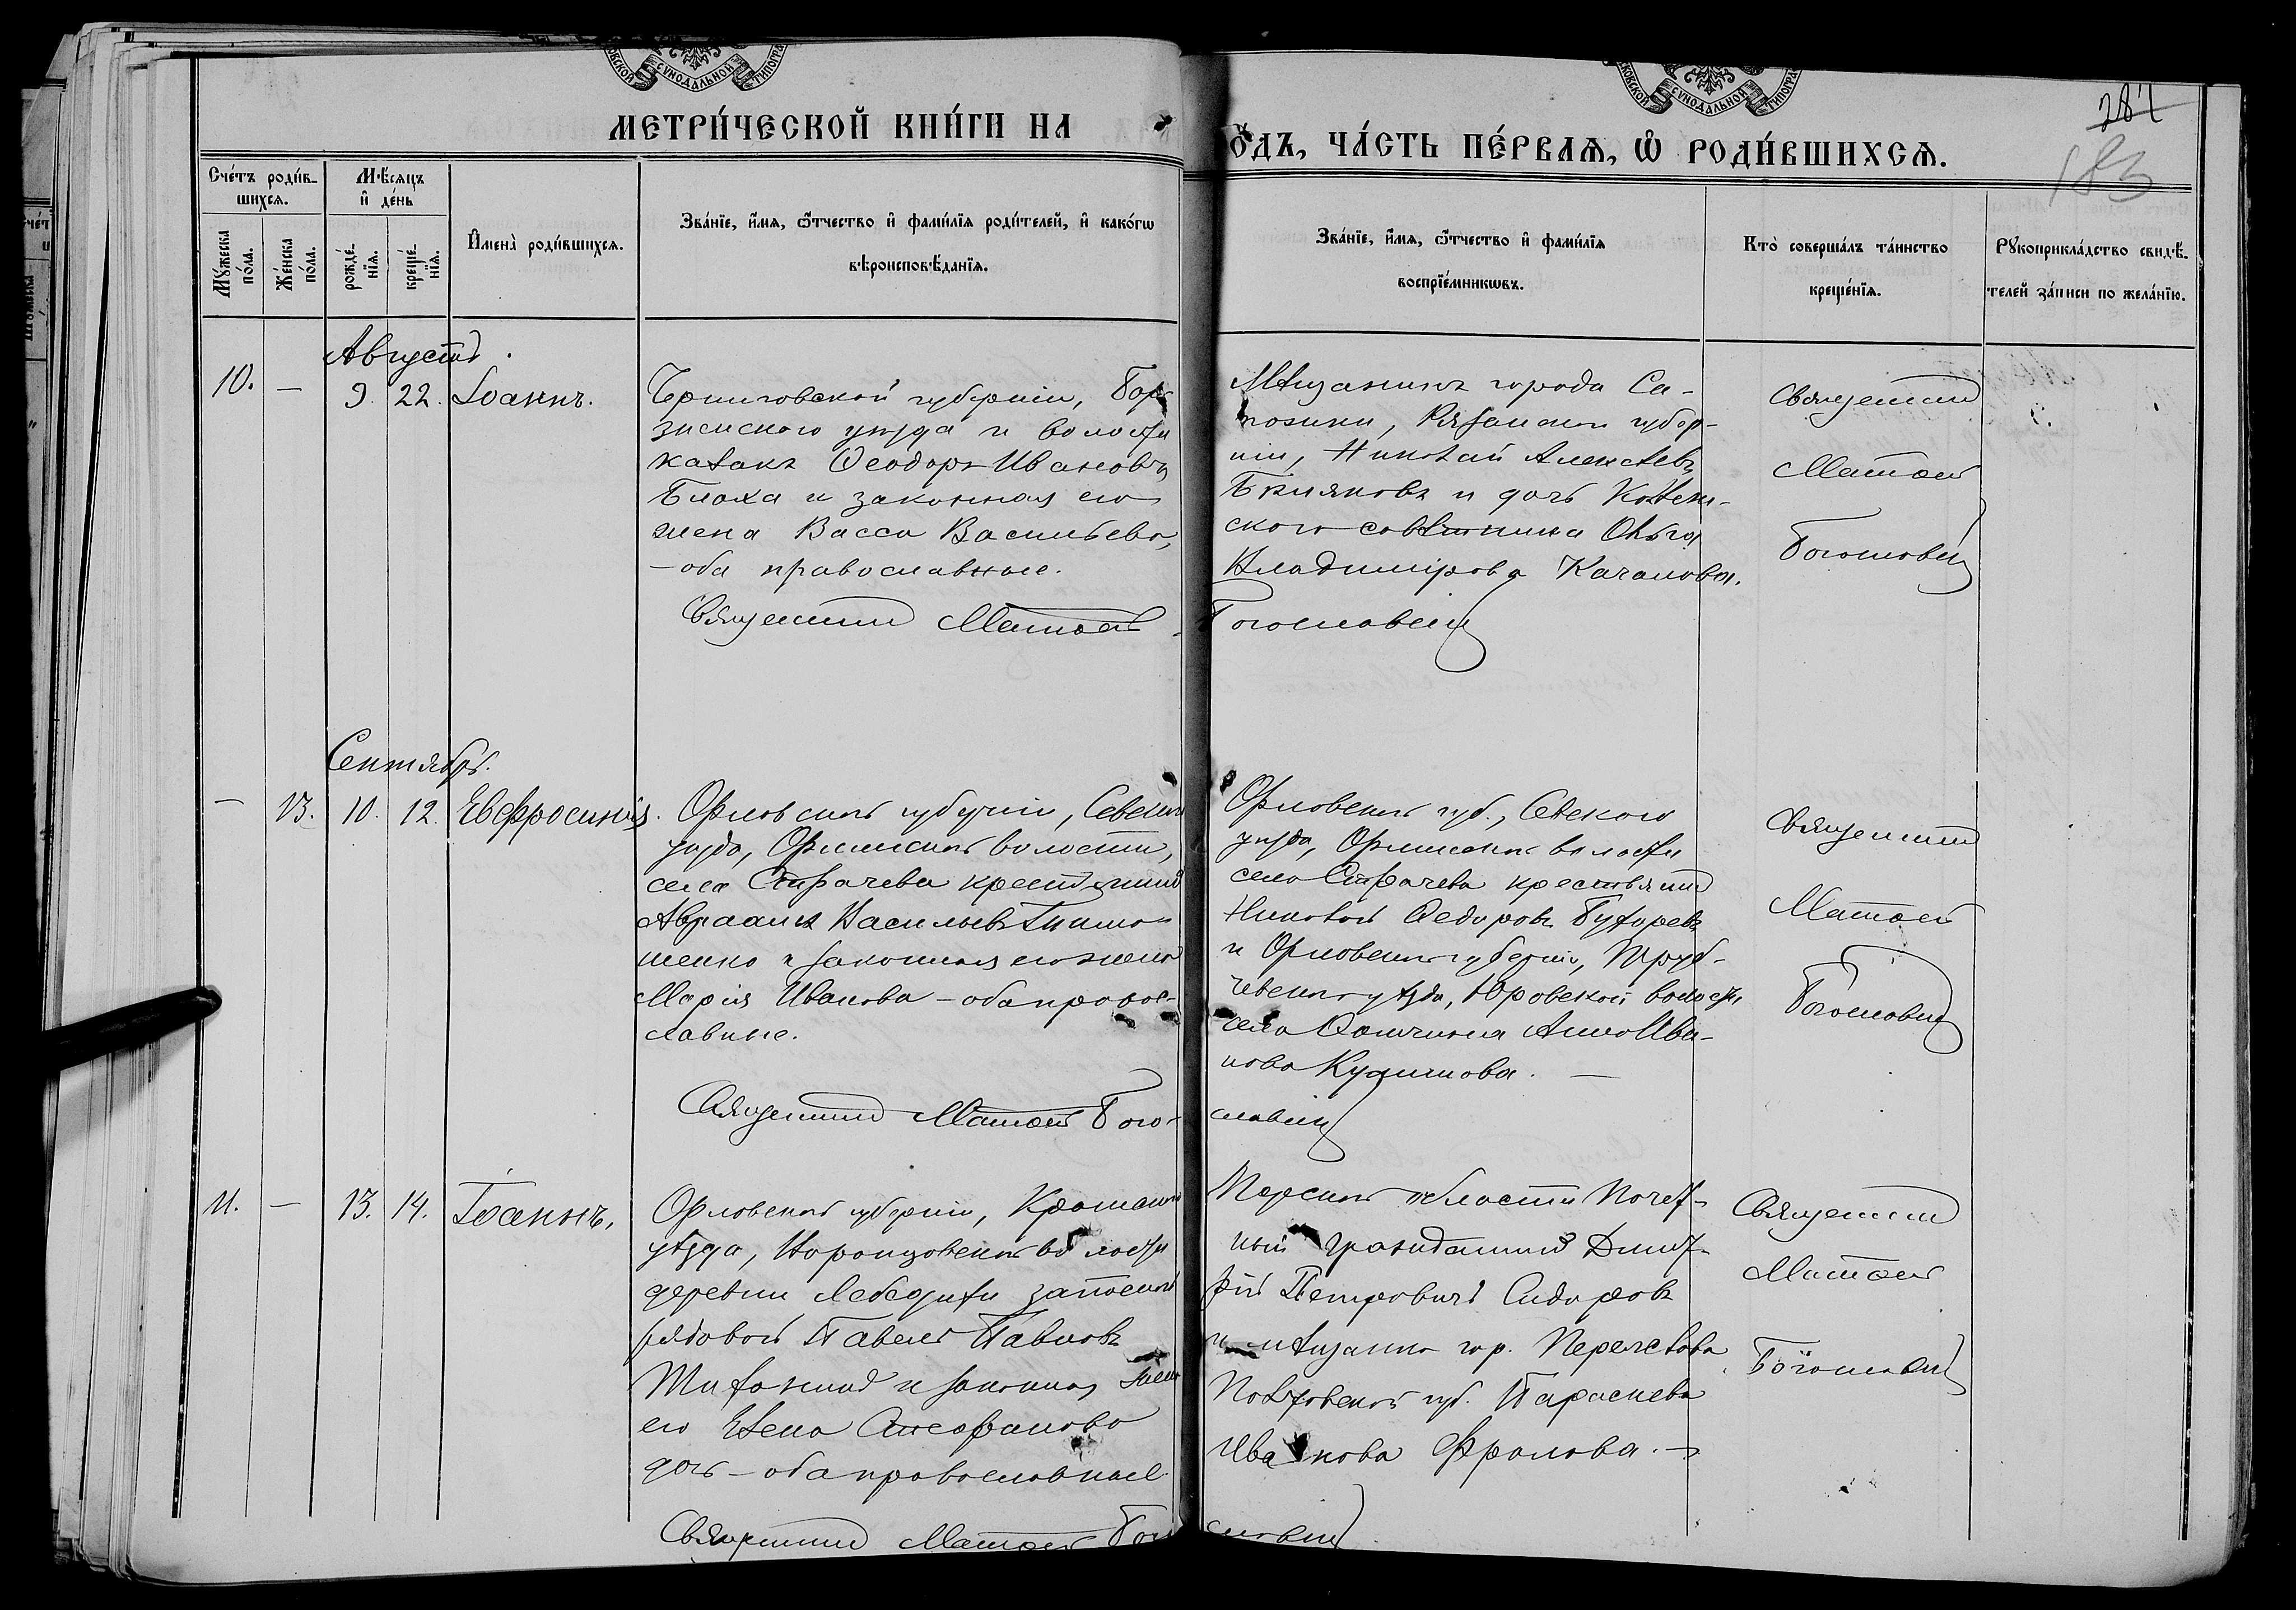 МЕТРИ́ЧЕСКОЙ КНИ́ГИ НА
О́ДЪ, ЧА́СТЬ ПЕ́РВАѦ, Ѡ҆ РОДИ́ВШИХСѦ.
281
183
Сче́тъ роди́в-
шихсѧ.
Мѣ́сѧцъ
и҆ де́нь
Му́жеска
по́ла.
Же́нска
по́ла.
рожде́-
нїѧ.
креще́-
нїѧ.
И҆мена̀ роди́вшихсѧ.
Зва́нїе, и҆́мѧ, ѻ҆́тчество и҆ фами́лїѧ роди́телей, и҆ како́гѡ
вѣроисповѣ́данїѧ.
Зва́нїе, и҆́мѧ, ѻ҆́тчество и҆ фами́лїѧ
воспрїе́мникѡвъ.
Кто̀ соверша́лъ та́инство
креще́нїѧ.
Рꙋкоприкла́дство свидѣ́-
телей за́писи по жела́нїю.
Августъ.
10. — 9. 22. Іоаннъ.
Черниговской губерніи, Бор-
зненскаго уѣзда и волости
казакъ Ѳеодоръ Ивановъ
Блоха и законная его
жена Васса Васильева,
— оба православные.
Священникъ Матѳей
Мѣщанинъ города Са-
пожки, Рязанской губер-
ніи, Николай Алексѣевъ
Бѣляковъ и дочь
скаго совѣтника Ольга
Владимірова
Богословскій
Священникъ
Матѳей
Богословскій
Сентябрь.
— 13. 10. 12. Евфросинія.
Орловской губерніи, Сѣвскаго
уѣзда, волости,
села крестьянинъ
Авраамъ Васильевъ Тимо-
шенко и законная его жена
Марія Иванова — оба правос-
лавные.
Священникъ Матѳей Бого-
Орловской губ., Сѣвскаго
уѣзда, волости
села крестьянинъ
Николай Ѳедоровъ
и Орловской губерніи, Труб-
чевскаго уѣзда, Юровской волости
села Анна Ива-
нова
словскій
Священникъ
Матѳей
Богословскій
11. — 13. 14. Іоаннъ.
Орловской губерніи, Кромскаго
уѣзда, волости
деревни запасной
рядовой Павелъ Павловъ
и законная жена
его Елена
дочь — оба православные.
Священникъ Матѳей Бого
Терской области Почет-
ный гражданинъ Дмит-
рій Петровичъ Сидоровъ
и мѣщанка гор.
Полтавской губ. Параскева
Иванова Фролова. —
словскій
Священникъ
Матѳей
Богословскій